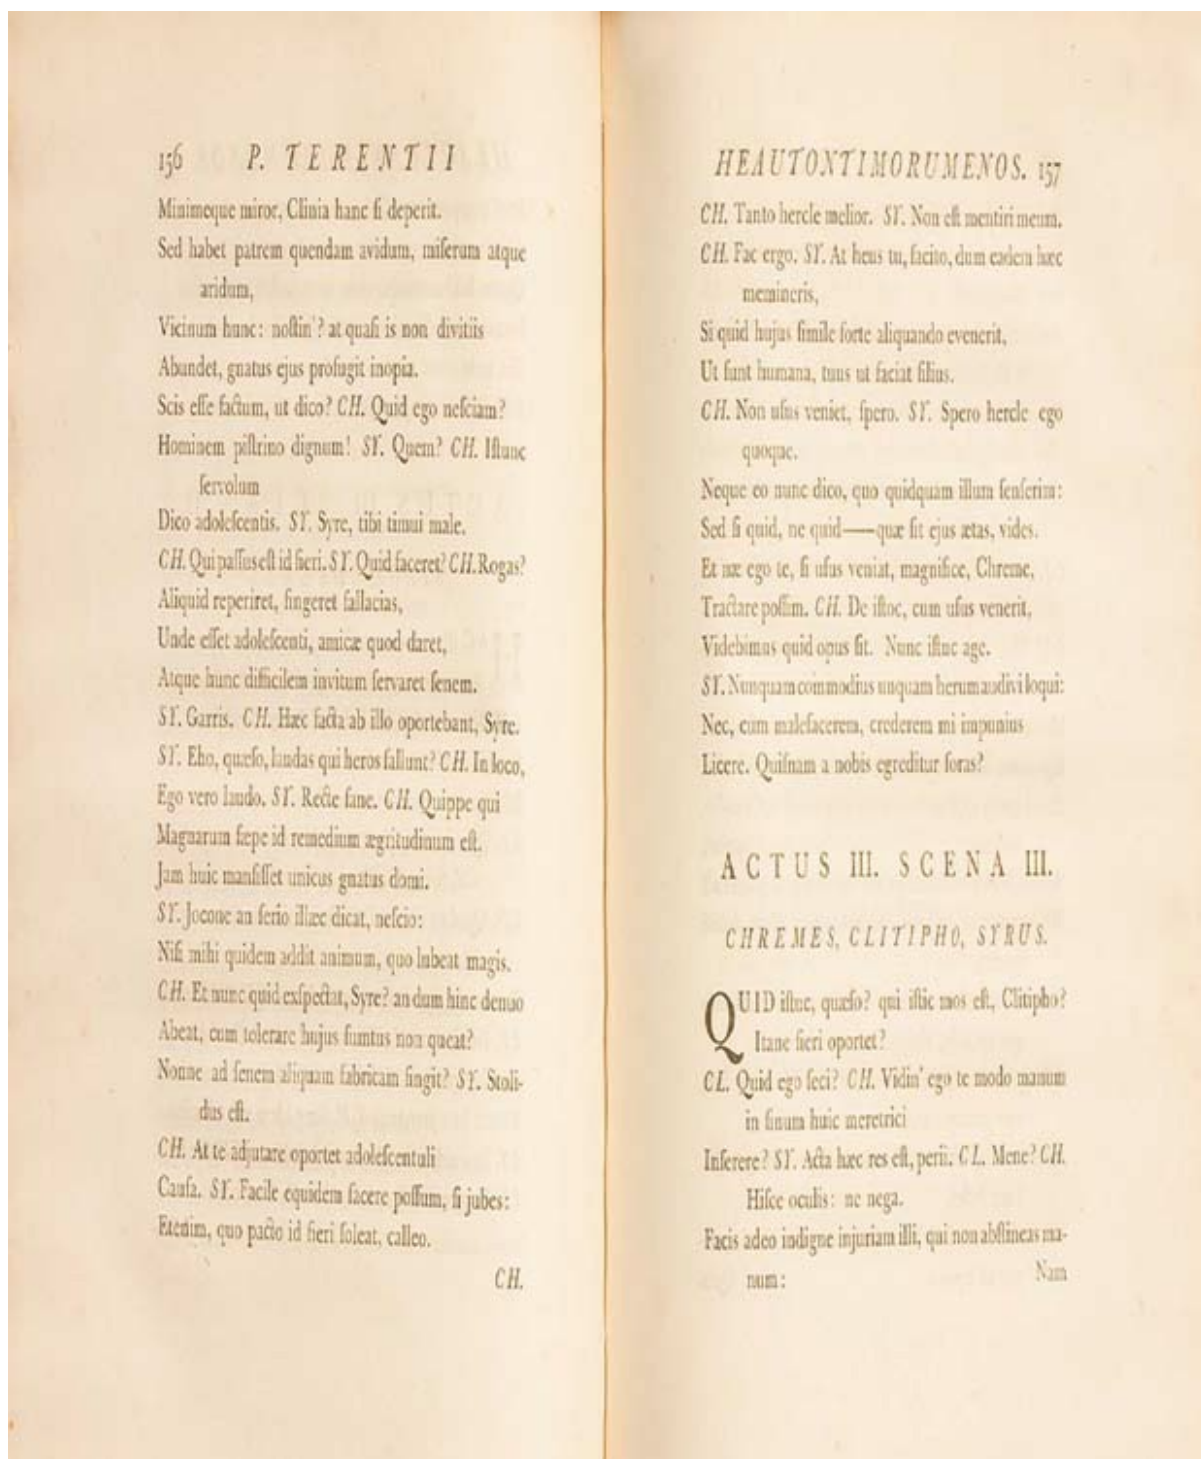 156 P. TERENTII
Minimeque miror, Clinia hanc ſi deperit.
Sed habet patrem quendam avidum, miſerum atque
aridum,
Vicinum hunc: noſtin'? at quaſi is non divitiis
Abundet, gnatus ejus profugit inopia.
Scis eſſe factum, ut dico? CH. Quid ego neſciam?
Hominem piſtrino dignum! SY. Quem? CH. Iſtunc
ſervolum
Dico adoleſcentis. SY. Syre, tibi timui male.
CH. Qui paſſus eſt id fieri. SY. Quid faceret? CH. Rogas?
Aliquid reperiret, fingeret fallacias,
Unde eſſet adoleſcenti, amicæ quod daret,
Atque hunc difficilem invitum ſervaret ſenem.
SY. Garris. CH. Hæc facta ab illo oportebant, Syre.
SY. Eho, quæſo, laudas qui heros fallunt? CH. In loco,
Ego vero laudo. SY. Recte ſane. CH. Quippe qui
Magnarum ſæpe id remedium ægritudinum eſt.
Jam huic manſiſſet unicus gnatus domi.
SY. Jocone an ſerio illæc dicat, neſcio:
Niſi mihi quidem addit animum, quo lubeat magis.
CH. Et nunc quid exſpectat, Syre? an dum hinc denuo
Abeat, cum tolerare hujus ſumtus non queat?
Nonne ad ſenem aliquam fabricam fingit? SY. Stoli-
dus eſt.
CH. At te adjutare oportet adoleſcentuli
Cauſa. SY. Facile equidem facere poſſum, ſi jubes:
Etenim, quo pacto id fieri ſoleat, calleo.
CH.
HEAUTONTIMORUMENOS. 157
CH. Tanto hercle melior. SY. Non eſt mentiri meum.
CH. Fac ergo. SY. At heus tu, facito, dum eadem hæc
memineris,
Si quid hujus ſimile forte aliquando evenerit,
Ut ſunt humana, tuus ut faciat filius.
CH. Non uſus veniet, ſpero. SY. Spero hercle ego
quoque.
Neque eo nunc dico, quo quidquam illum ſenſerim:
Sed ſi quid, ne quid——quæ ſit ejus ætas, vides.
Et næ ego te, ſi uſus veniat, magnifice, Chreme,
Tractare poſſim. CH. De iſtoc, cum uſus venerit,
Videbimus quid opus ſit. Nunc iſtuc age.
SY. Nunquam commodius unquam herum audivi loqui:
Nec, cum malefacerem, crederem mi impunius
Licere. Quiſnam a nobis egreditur foras?
ACTUS III. SCENA III.
CHREMES, CLITIPHO, SYRUS.
QUID iſtuc, quæſo? qui iſtic mos eſt, Clitipho?
Itane fieri oportet?
CL. Quid ego feci? CH. Vidin' ego te modo manum
in ſinum huic meretrici
Inſerere? SY. Acta hæc res eſt, perii. CL. Mene? CH.
Hiſce oculis: ne nega.
Facis adeo indigne injuriam illi, qui non abſtineas ma-
num:
Nam